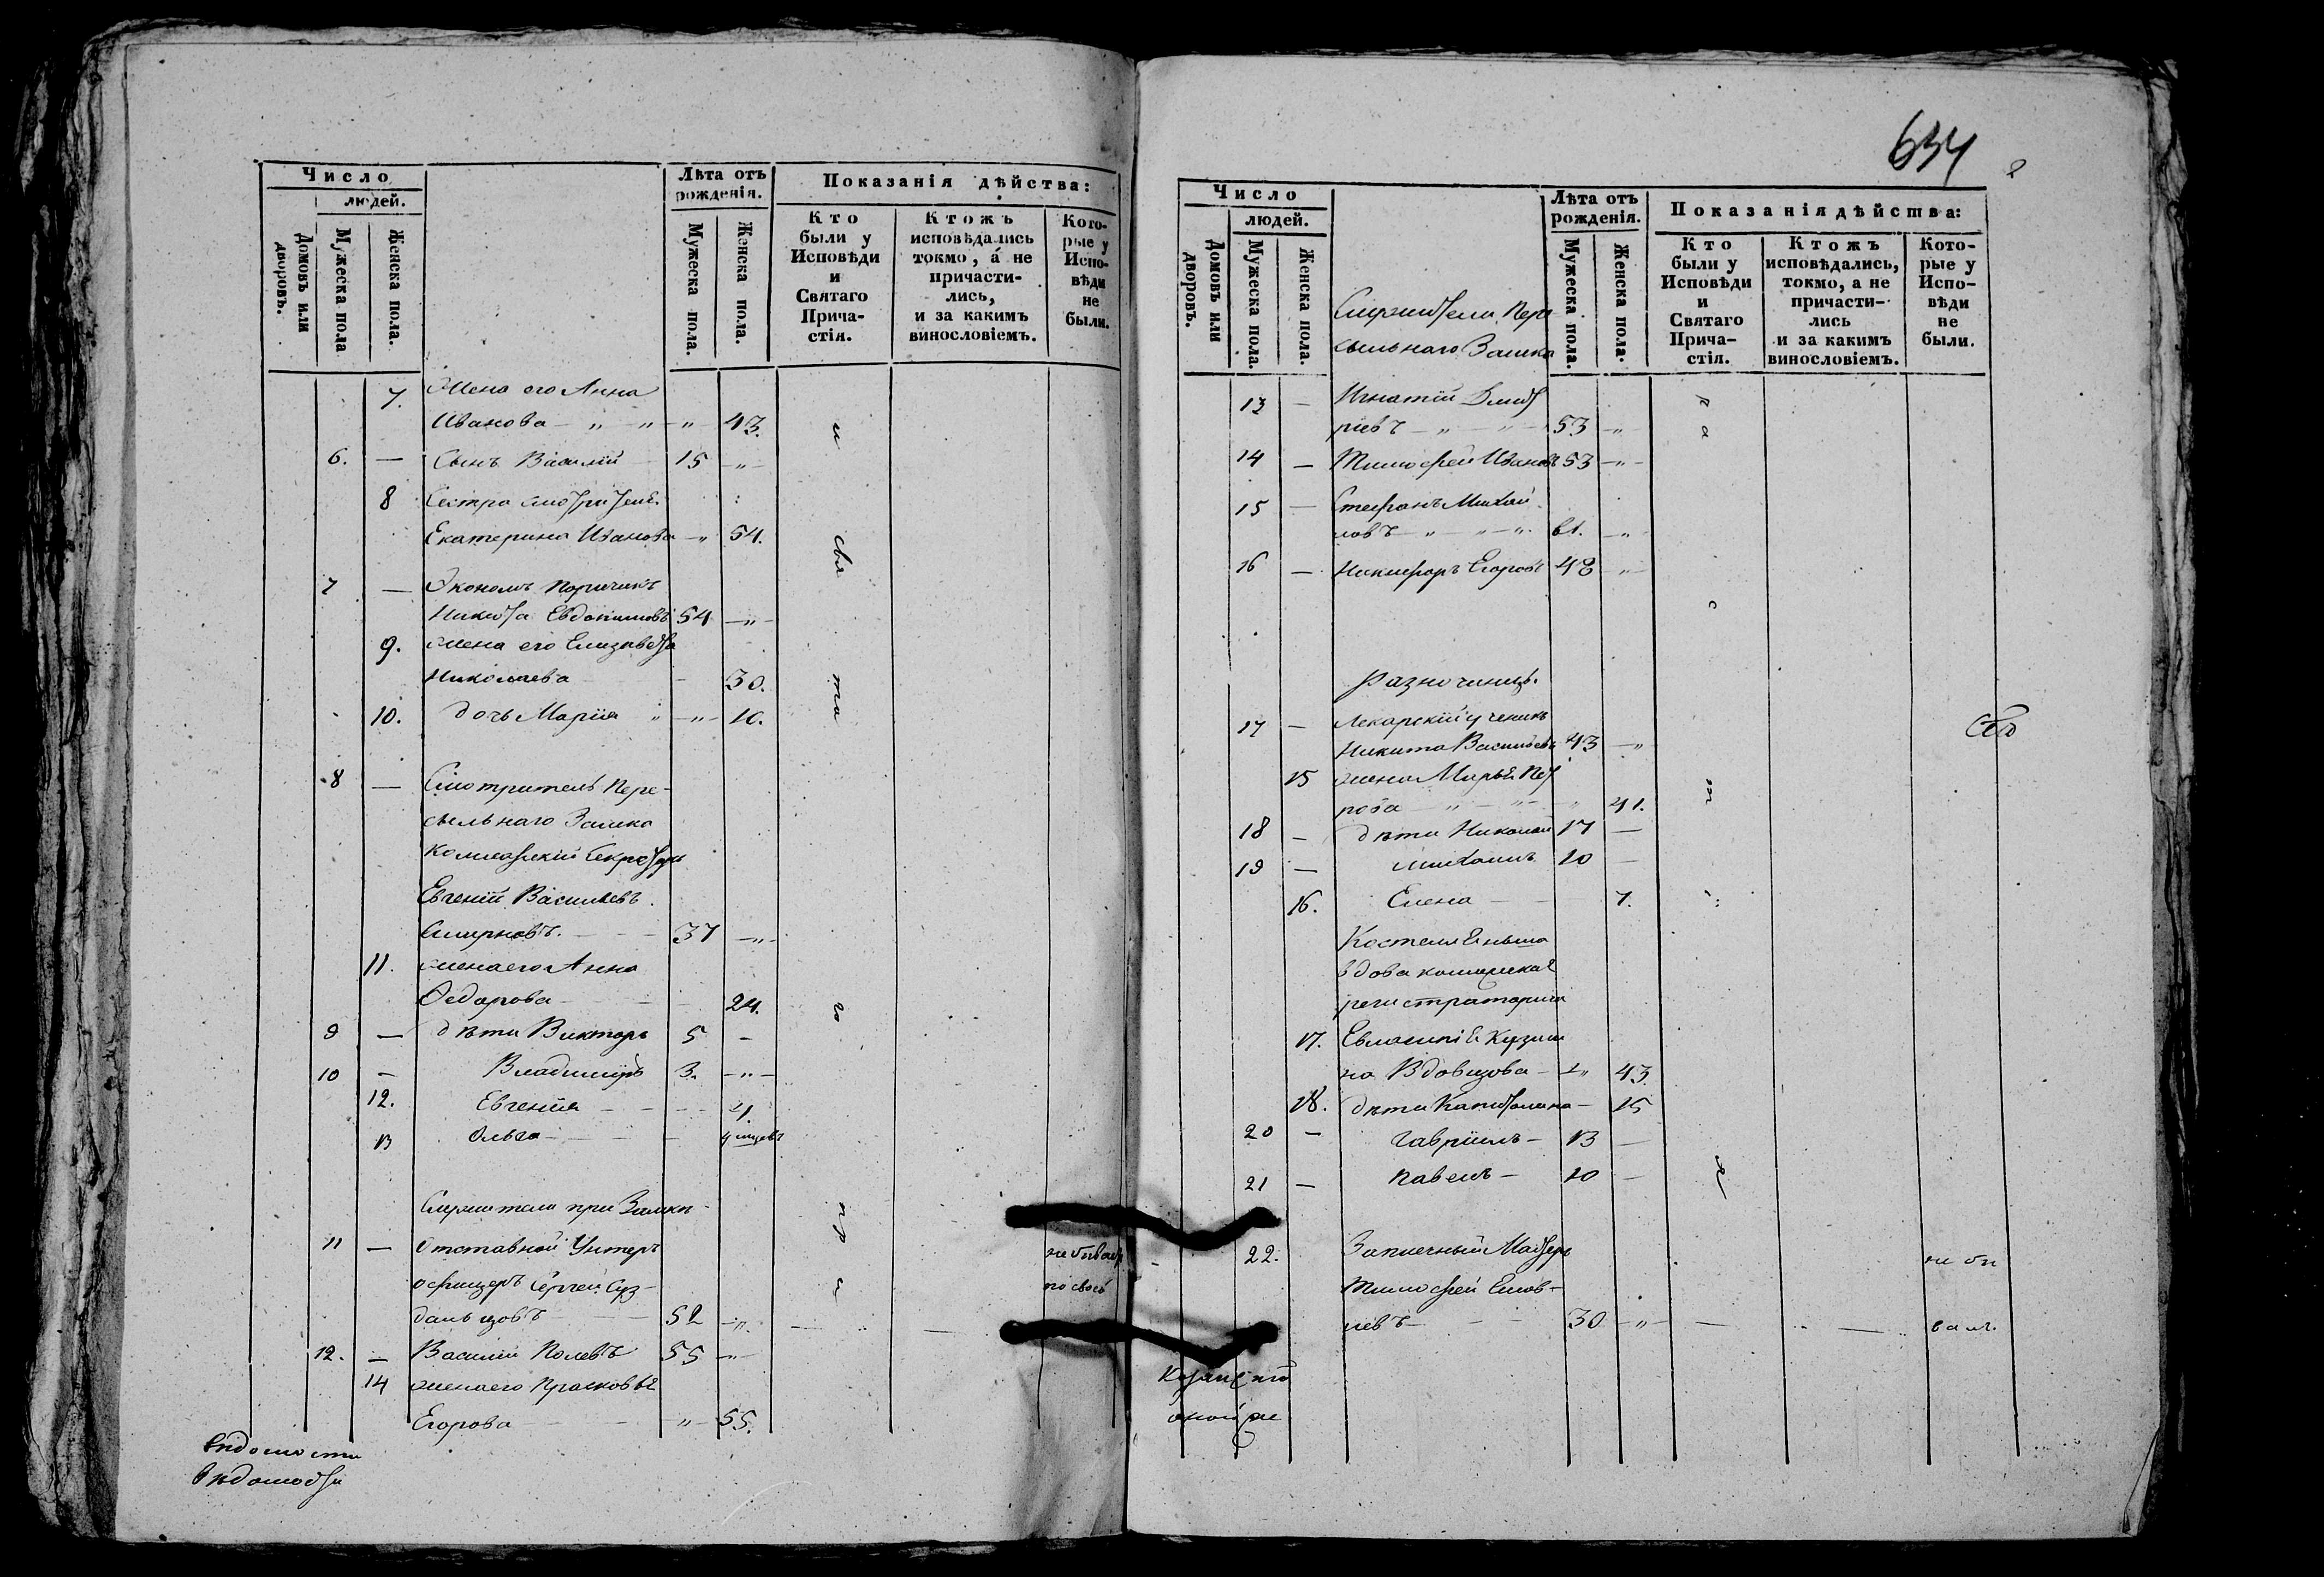 Число
людей.
Домовъ или дворовъ.
Мужеска пола
Женска пола.
Лѣта отъ рожденія.
Мужеска пола.
Женска пола.
Показанія дѣйства:
Кто были у Исповѣди и Святаго Прича-стія.
Ктожъ исповѣдались токмо, а не причасти-лись, и за какимъ винословіемъ.
Кото-рые у Испо-вѣди не были.
7. Жена его Анна
Иванова — „ — „ — „ 43.
6. — Сынъ Василій 15 — „ —
8 Сестра смотрителя
Екатерина Иванова — „ 54.
7 — Экономъ Поручикъ
Никита Евдокимовъ 54 — „ —
9. жена его Елизавета
Николаева — 30.
10. дочь Марія „ — „ — 10.
8 — Смотритель Пере-
сыльнаго Замка
Евгеній Васильевъ
Смирновъ. — — 37 — „ —
11. жена его Анна
Ѳедорова — — 24.
9 — дѣти Викторъ 5 —
10 — Владиміръ 3. — „ —
12. Евгенія — — — 4.
13 Ольга — — —
Служители при Замкѣ
11 — Отставной Унтеръ
офицеръ Сергей Суз-
дальцовъ — — 52 — „ —
12. — Василій Полевъ 55 — „ —
14 жена его Прасковья
Егорова — — „ — 55.
и
свя
та
го
пр
и
не бывалъ
по своей
634
2
Число
людей.
Домовъ или дворовъ.
Мужеска пола.
Женска пола.
Служители Пере-
сыльнаго Замка
Лѣта отъ рожденія.
Мужеска пола.
Женска пола.
Показанія дѣйства:
Кто были у Исповѣди и Святаго Прича-стія.
Ктожъ исповѣдались, токмо, а не причасти-лись и за какимъ винословіемъ.
Кото-рые у Испо-вѣди не были.
13 — Игнатій Дмит
ріевъ — „ — „ — 53 — „
14 — Тимофей Ивановъ 53 — „ —
15 — Стефанъ Михай
ловъ — „ — „ — „ 61. — „
16 — Никифоръ Егоровъ 48 — „ —
Разночинцы.
17 — Лекарскій ученикъ
Никита Васильевъ 43 — „
15 жена Марья Пет
рова — „ — „ — „ 41.
18 — дѣти Николай 17 —
19 — Михаилъ 10 —
16. Елена — — 7.
Кастелянша
вдова коллежская
регистраторша
17. Евлампія Кузьми
на Вдовцова — „ 43
18. дѣти Капитолина — 15
20 — Гавріилъ — 13 —
21 — Павелъ — 10 —
22. Заплечный Мастеръ
Тимофей
30 — „ —
не бы
валъ.